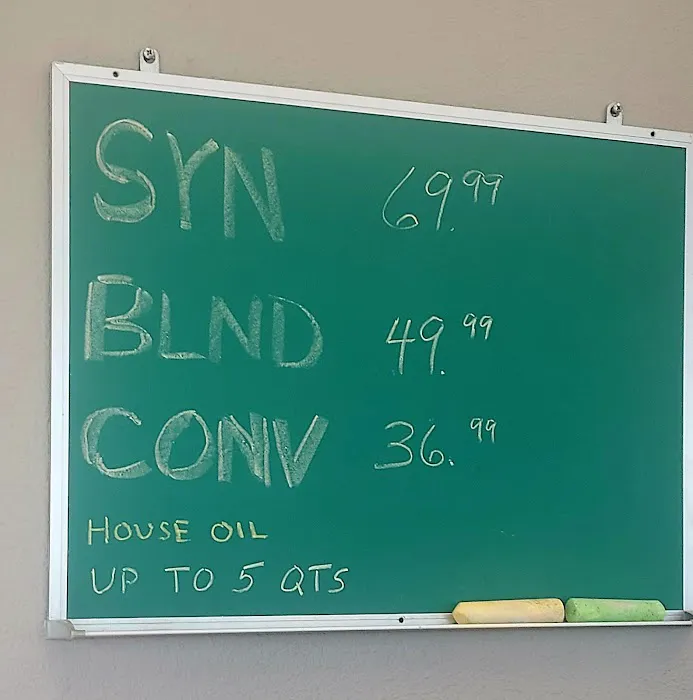 SYN 69.99
BLND 49.99
CONV 36.99
HOUSE OIL
UP TO 5 QTS